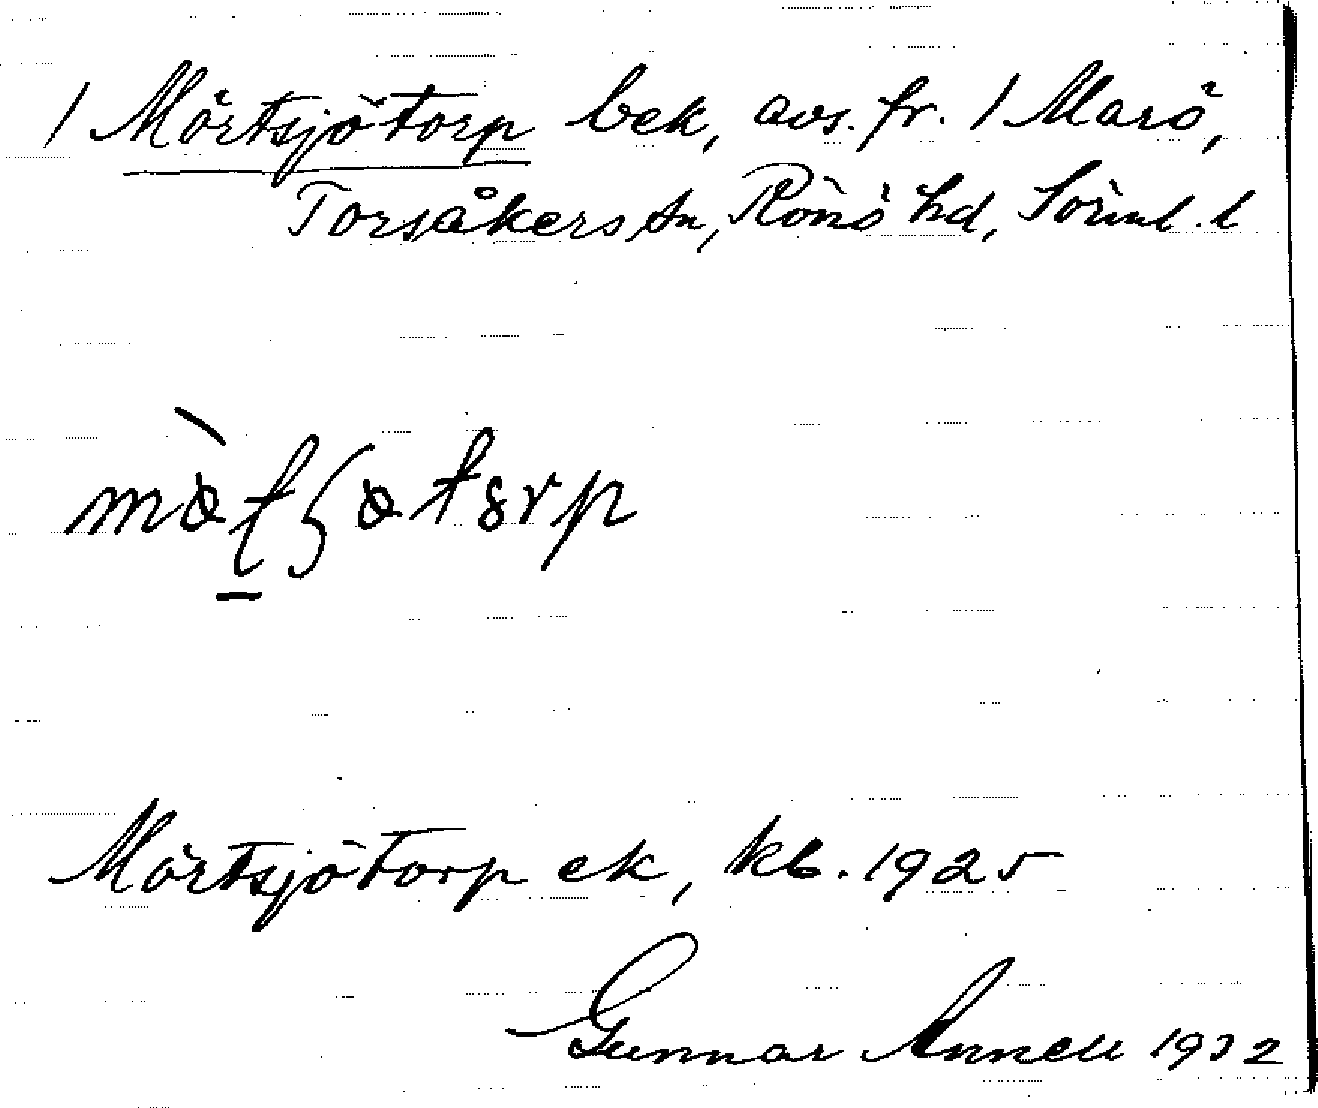 1 Mörtsjötorp bek, avs. fr. 1 Marö,
Torsåkers sn, Rönö hd, Sörml. l
Mörtsjötorp ek, kb. 1925
Gunnar Annell 1932